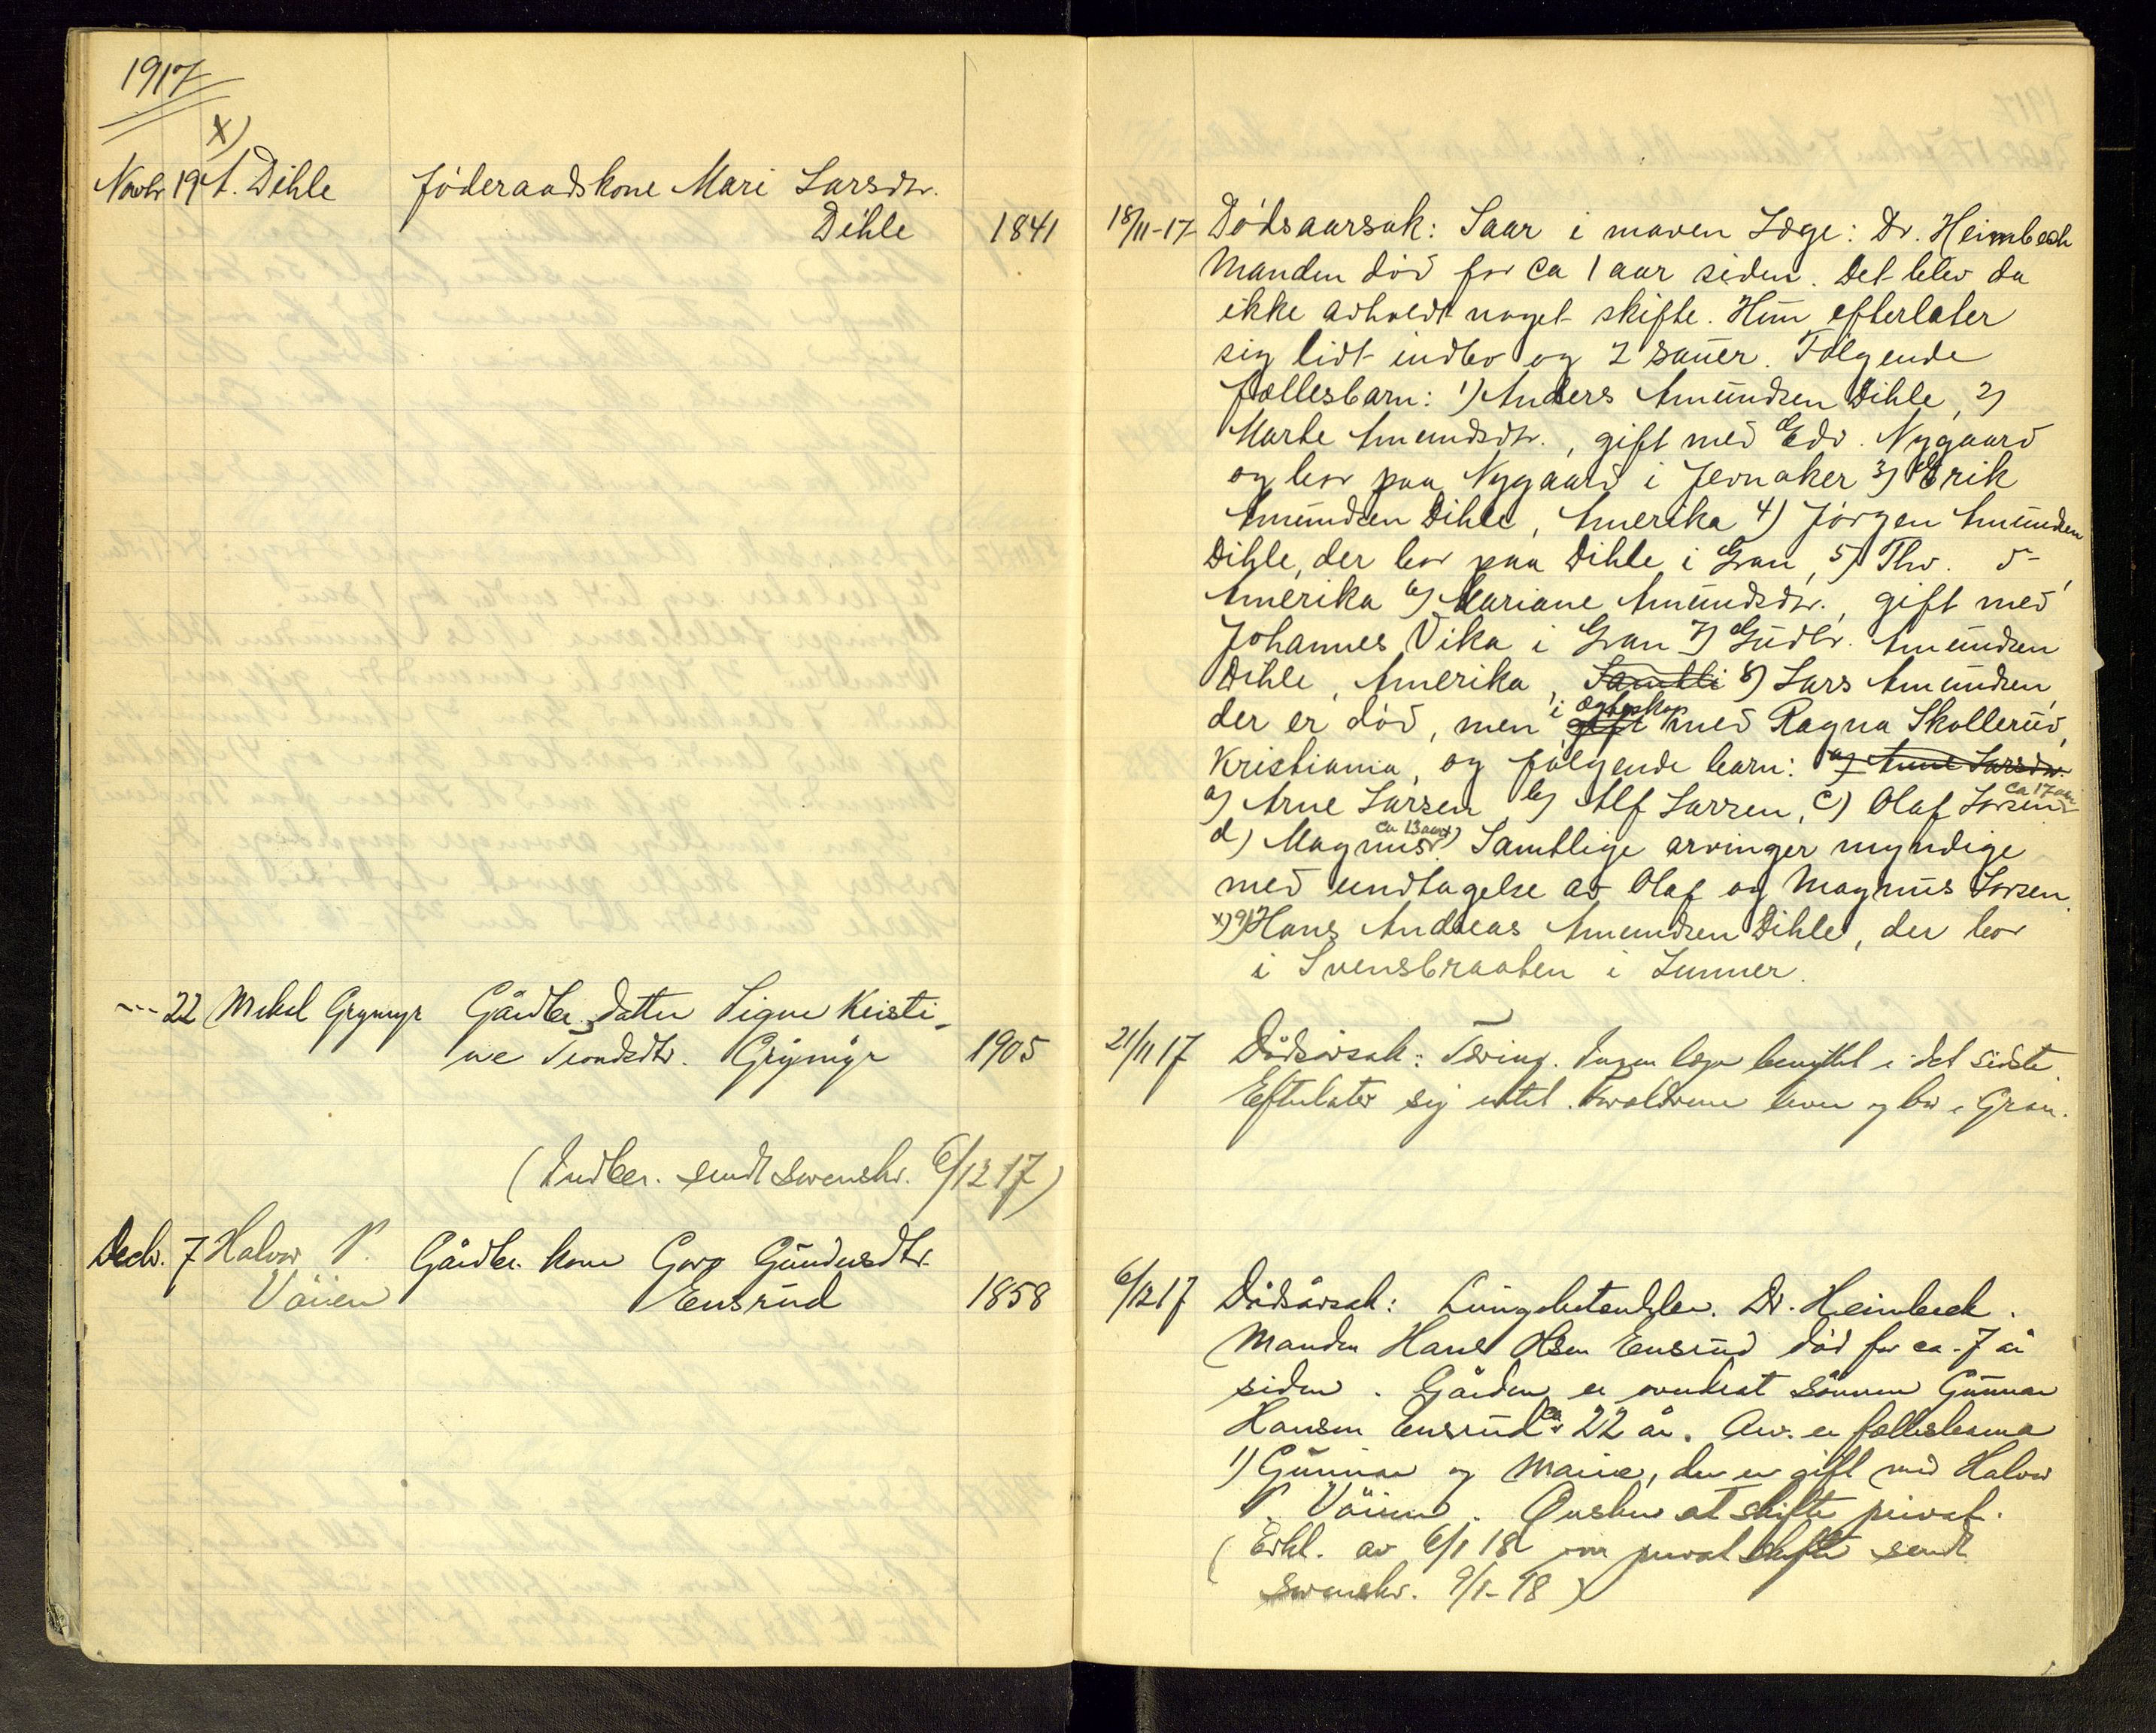 1917
x)
Novbr. 19 A. Dihle Föderaadskone Mari Larsdtr.
Dihle 1841
18/11-17 Dödsaarsak: Saar i maven Læge: Dr. Heimbeck
Manden död for ca 1 aar siden. Det blev da
ikke avholdt noget skifte. Hun efterlater
sig lidt indbo og 2 sauer. Følgende
fællesbarn: 1) Anders Amundsen Dihle, 2)
Marte Amundsdtr., gift med Edv. Nygaard
og bor paa Nygaard i Jevnaker 3) Erik
Amundsen Dihle, Amerika 4) Jörgen Amundsen
Dihle, der bor paa Dihle i Gran, 5) Thv. d-
Amerika 6) Mariane Amundsdtr., gift med
Johannes Vika i Gran 7) Gudbr. Amundsen
Dihle, Amerika, Samtli 8) Lars Amundsen,
der er död, men gift i ægteskap med Ragna Skollerud,
Kristiania, og fölgende barn: a) Anne Larsdtr.
a) Arne Larsen b) Alf Larsen, c) Olaf Larsen ca 17 aar
d) Magnus ca 13 aar x) Samtlige arvinger myndige
med undtagelse av Olaf og Magnus Larsen.
x) 9) Hans Andreas Amundsen Dihle, der bor
i Svensbraaten i Lunner.
--- 22 Mikal Grymyr Gårdbr. datter Signe Kristi-
ne Trondsdtr. Grymyr 1905
21/11 17 Dödsårsak: Tæring. Ingen læge benyttet i det sidste.
Efterlater sig intet. Forældrene lever og bor i Gran.
(Indber. sendt sorenskr. 6/12 17)
Decbr. 7 Halvor P.
Våien Gårdbr. kone Goro Gundersdtr.
Ensrud 1858
6/12 17 Dödsårsak: Lungebetendelse. Dr. Heimbeck.
Manden Hans Olsen Ensrud död for ca. 7 år
siden. Gården er overdrat sönnen Gunnar
Hansen Ensrud ca 22 år. Arv. er fællesbarna
1) Gunnar og Marie, der er gift med Halvor
P. Våien. Önsker at skifte privat.
(Erkl. av 6/1 18 om privat skifte sendt
sorenskr. 9/1-18)